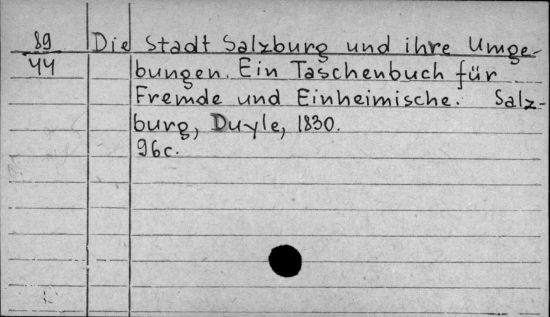 89 Die Stadt Salzburg und ihre Umge-
44 bungen. Ein Taschenbuch für
Fremde und Einheimische. Salz-
burg, Duyle, 1830.
96c.